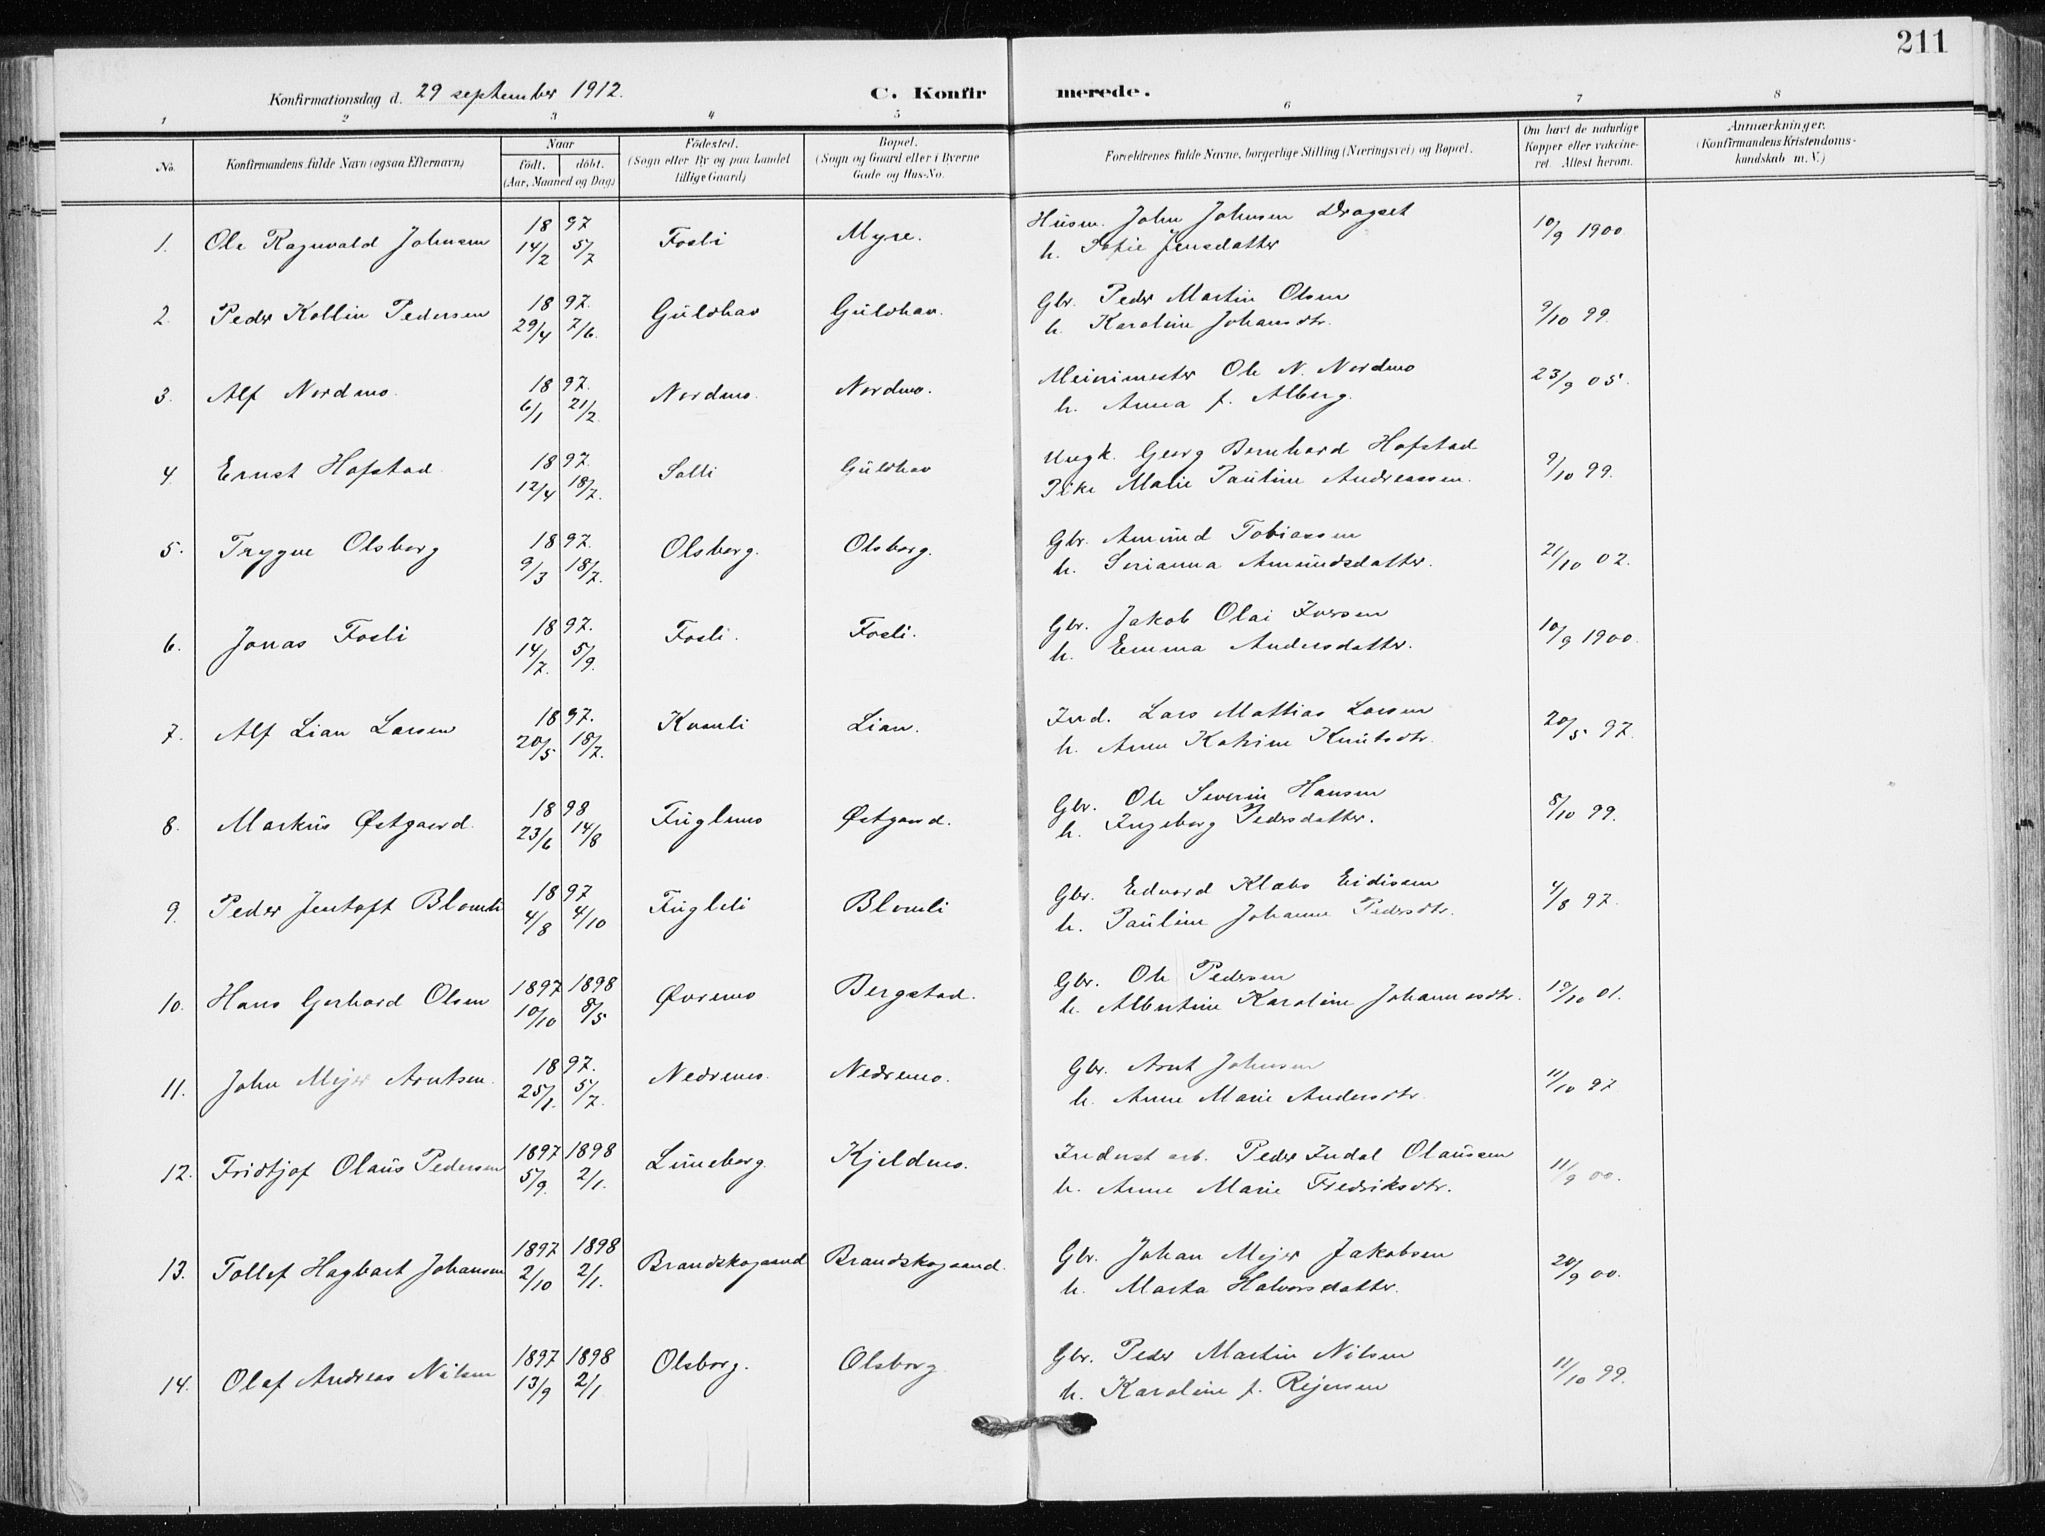 211
Konfirmationsdag d. 29 september 1912. C. Konfirmerede.
1 2 3 4 5 6 7 8
No. Konfirmandens fulde Navn (ogsaa Efternavn) Naar født. døbt. (Aar, Maaned og Dag) Fødested. (Sogn eller By og paa Landet tillige Gaard) Bopæl. (Sogn og Gaard eller i Byerne Gade og Hus-No. Forældrenes fulde Navne, borgerlige Stilling (Næringsvei) og Bopæl. Om havt de naturlige Kopper eller vaccineret. Attest herom. Anmærkninger. (Konfirmandens Kristendomskundskab m. V.)
1. Ole Ragnvald Johnsen 1897 14/2 5/7 Fosli Myre. Husm. John Johnsen Dragset 10/9 1900
h. Sofie Jensdatter
2. Peder Kollin Pedersen 1897. 29/4 7/6. Guldhav Guldhav. Gbr. Peder Martin Olsen 9/10 99.
h. Karoline Johansdtr.
3. Alf Nordmo. 1897. 6/1 21/2. Nordmo. Nordmo. Meierimester Ole N. Nordmo 23/9 05.
h. Anna f. Alberg.
4. Ernst Hofstad. 1897. 12/4 18/7. Solli Guldhav Ungk. Georg Bernhard Hofstad 9/10 99.
Pike Marie Pauline Andreassen.
5. Trygve Olsborg 1897. 9/3 18/7. Olsborg. Olsborg. Gbr. Amund Tobiassen 21/10 02.
h. Serianna Amundsdatter.
6. Jonas Fosli 1897. 14/7. 5/9. Fosli. Fosli. Gbr. Jakob Olai Iversen 10/9 1900.
h. Emma Andersdatter.
7. Alf Lian Larsen 1897. 20/5 18/7. Kvanli Lian. Ind. Lars Mattias Larsen 20/5 97.
h. Anne Katrine Knutsdtr.
8. Markus Østgaard. 1898 23/6 14/8 Fuglmo Østgaard. Gbr. Ole Severin Hansen 5/10 99.
h. Ingeborg Pedersdatter.
9. Peder Jentoft Blomli 1897 4/8 4/10 Fugleli Blomli Gbr. Edvard Klæbo Eidissen 4/8 97.
h. Pauline Johanne Pedersdtr.
10. Hans Gerhard Olsen 1897 1898 10/10 8/5 Øvremo Bergstad. Gbr. Ole Pedersen 15/10 01.
h. Albertine Karoline Johannesdtr.
11. John Mejer Arntsen. 1897. 25/1. 5/7. Nedremo. Nedremo. Gbr. Arnt Johnsen 11/10 97
h. Anne Marie Andersdtr.
12. Fridtjof Olaus Pedersen 1897 1898 5/9. 2/1. Luneborg. Kjeldmo. Inderst arb. Peder Indal Olaussen 11/9 00.
h. Anne Marie Fredriksdtr.
13. Tollef Hagbart Johansen 1897 1898 2/10 2/1. Brandskogaand Brandskogaand. Gbr. Johan Mejer Jakobsen 20/9 00.
h. Marta Halvorsdatter.
14. Olaf Andreas Nilsen 1897 1898 13/9 2/1. Olsborg. Olsborg Gbr. Peder Martin Nilsen 11/10 99.
h. Karoline f. Rejersen